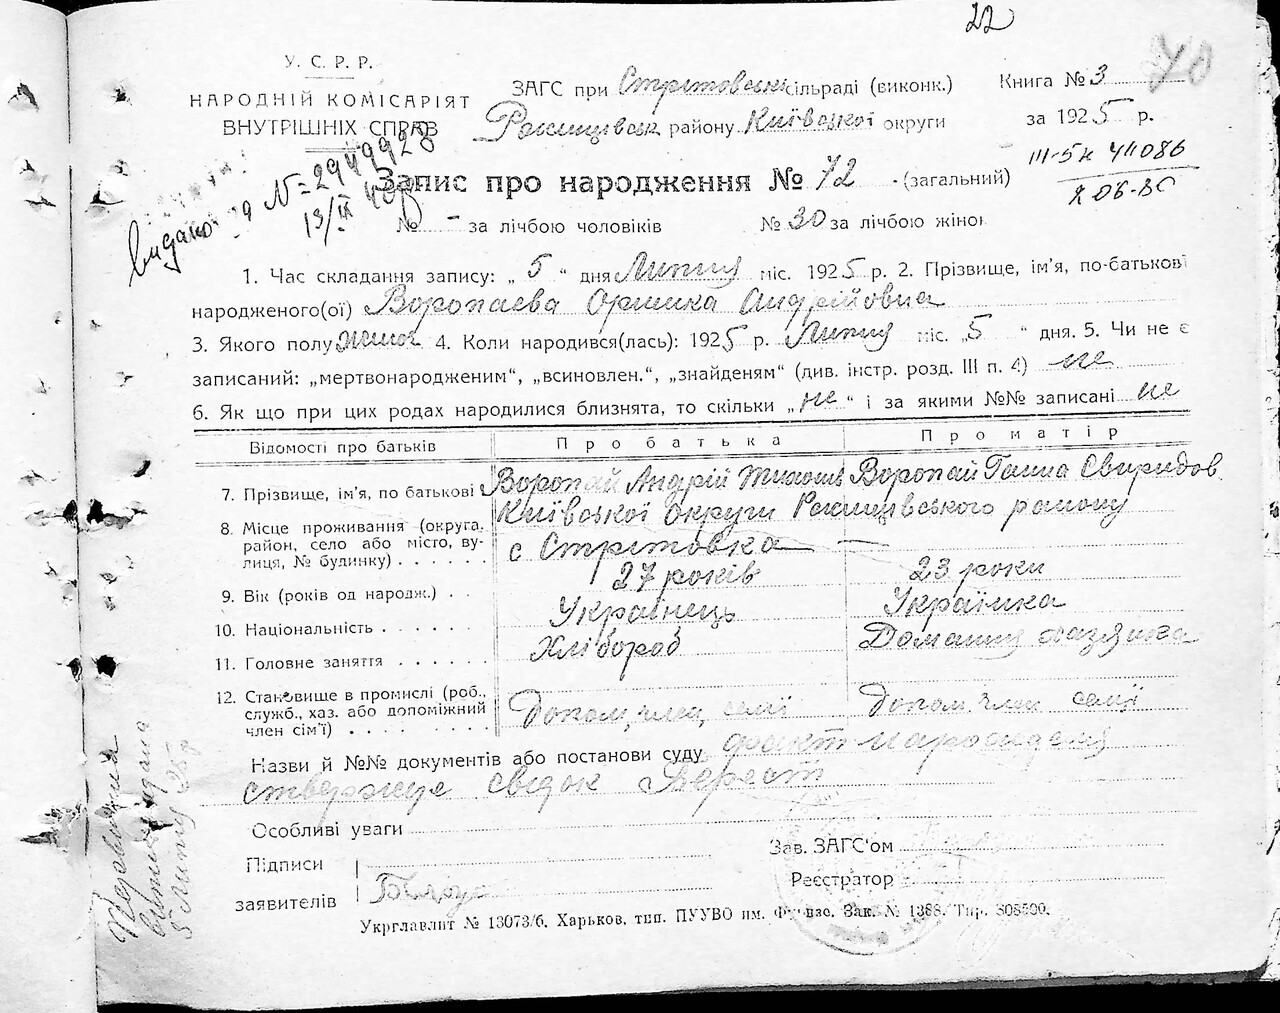 22
У. С. Р. Р.
НАРОДНІЙ КОМІСАРІЯТ
ВНУТРІШНІХ СПРАВ
ЗАГС при Стрітовські сільраді (виконк.)
Книга № 3
70
району Київської округи
за 1925 р.
Запис про народження № 72 (загальний)
III-5К 411086
видано
№ 2949928
13/IX
№ - за лічбою чоловіків № 30 за лічбою жінок
1. Час складання запису: „ 5 “ дня Липня міс. 1925 р. 2. Прізвище, ім'я, по-батькові
народженого(ої) Воропаєва Оришка Андрійовна
3. Якого полу жіноч 4. Коли народився(лась): 1925 р. Липня міс. „5 “ дня. 5. Чи не є
записаний: „мертвонародженим“, „всиновлен.“, „знайденям“ (див. інстр. розд. III п. 4) не
6. Як що при цих родах народилися близнята, то скільки „не“ і за якими №№ записані не
Відомості про батьків Про батька Про матір
7. Прізвище, ім'я, по батькові Воропай Андрій Воропай Ганна Свиридов
8. Місце проживання (округа, район, село або місто, вулиця, № будинку) Київської округи району
с Стрітовка —
9. Вік (років од народж.) 27 років 23 роки
10. Національність Українець Українка
11. Головне заняття Хлібороб Домашня хазяйка
12. Становище в промислі (роб., служб., хаз. або допоміжний член сім'ї) Допом, член, семї Допом, член семї
Назви й №№ документів або постанови суду факт народженя
ствержує свідок
Особливі уваги
Підписи
заявителів
Зав. ЗАГС'ом
Реєстратор
Укрглавліт № 13073/6. Харьков, тип. ПУУВО им. Фрунзе. Зак. № 1388. Тир. 308500.
видана
5 Липня 25 р